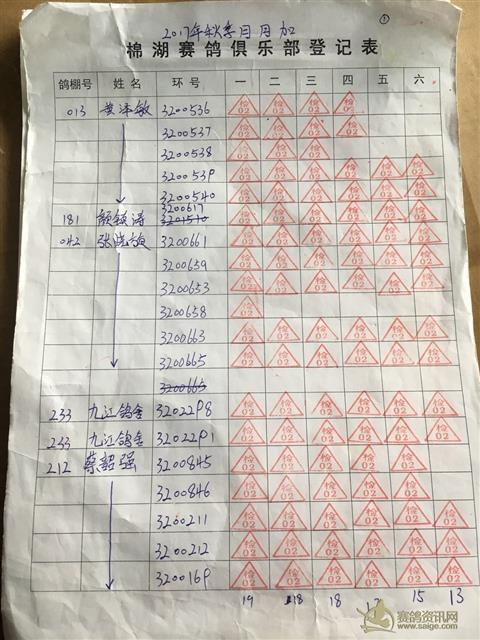 ①
2017年秋季月月加
棉湖赛鸽俱乐部登记表
鸽棚号 姓名 环号 一 二 三 四 五 六
013 黄泽敏 3200536 检02 检02 检02 检02
3200537 检02 检02 检02 检02
3200538 检02 检02 检02
3200539 检02 检02 检02 检02 检02 检02
3200540 检02 检02 检02 检02 检02 检02
3200617
181 颜镇涛 3201510 检02 检02 检02 检02 检02 检02
042 张晓敏 3200661 检02 检02 检02 检02 检02 检02
3200659 检02 检02 检02 检02 检02 检02
3200653 检02 检02 检02 检02 检02 检02
3200658 检02
3200663 检02 检02 检02 检02 检02 检02
3200665 检02 检02 检02 检02 检02 检02
3200663
233 九江鸽舍 3202298 检02 检02 检02 检02 检02 检02
233 九江鸽舍 3202291 检02 检02 检02 检02 检02 检02
212 蔡韶强 3200845 检02 检02 检02 检02 检02
3200846 检02 检02 检02 检02 检02
3200211 检02 检02 检02 检02 检02 检02
3200212 检02 检02 检02 检02 检02 检02
3200169 检02 检02 检02 检02 检02 检02
19 18 18 17 15 13
赛鸽资讯网
www.saige.com